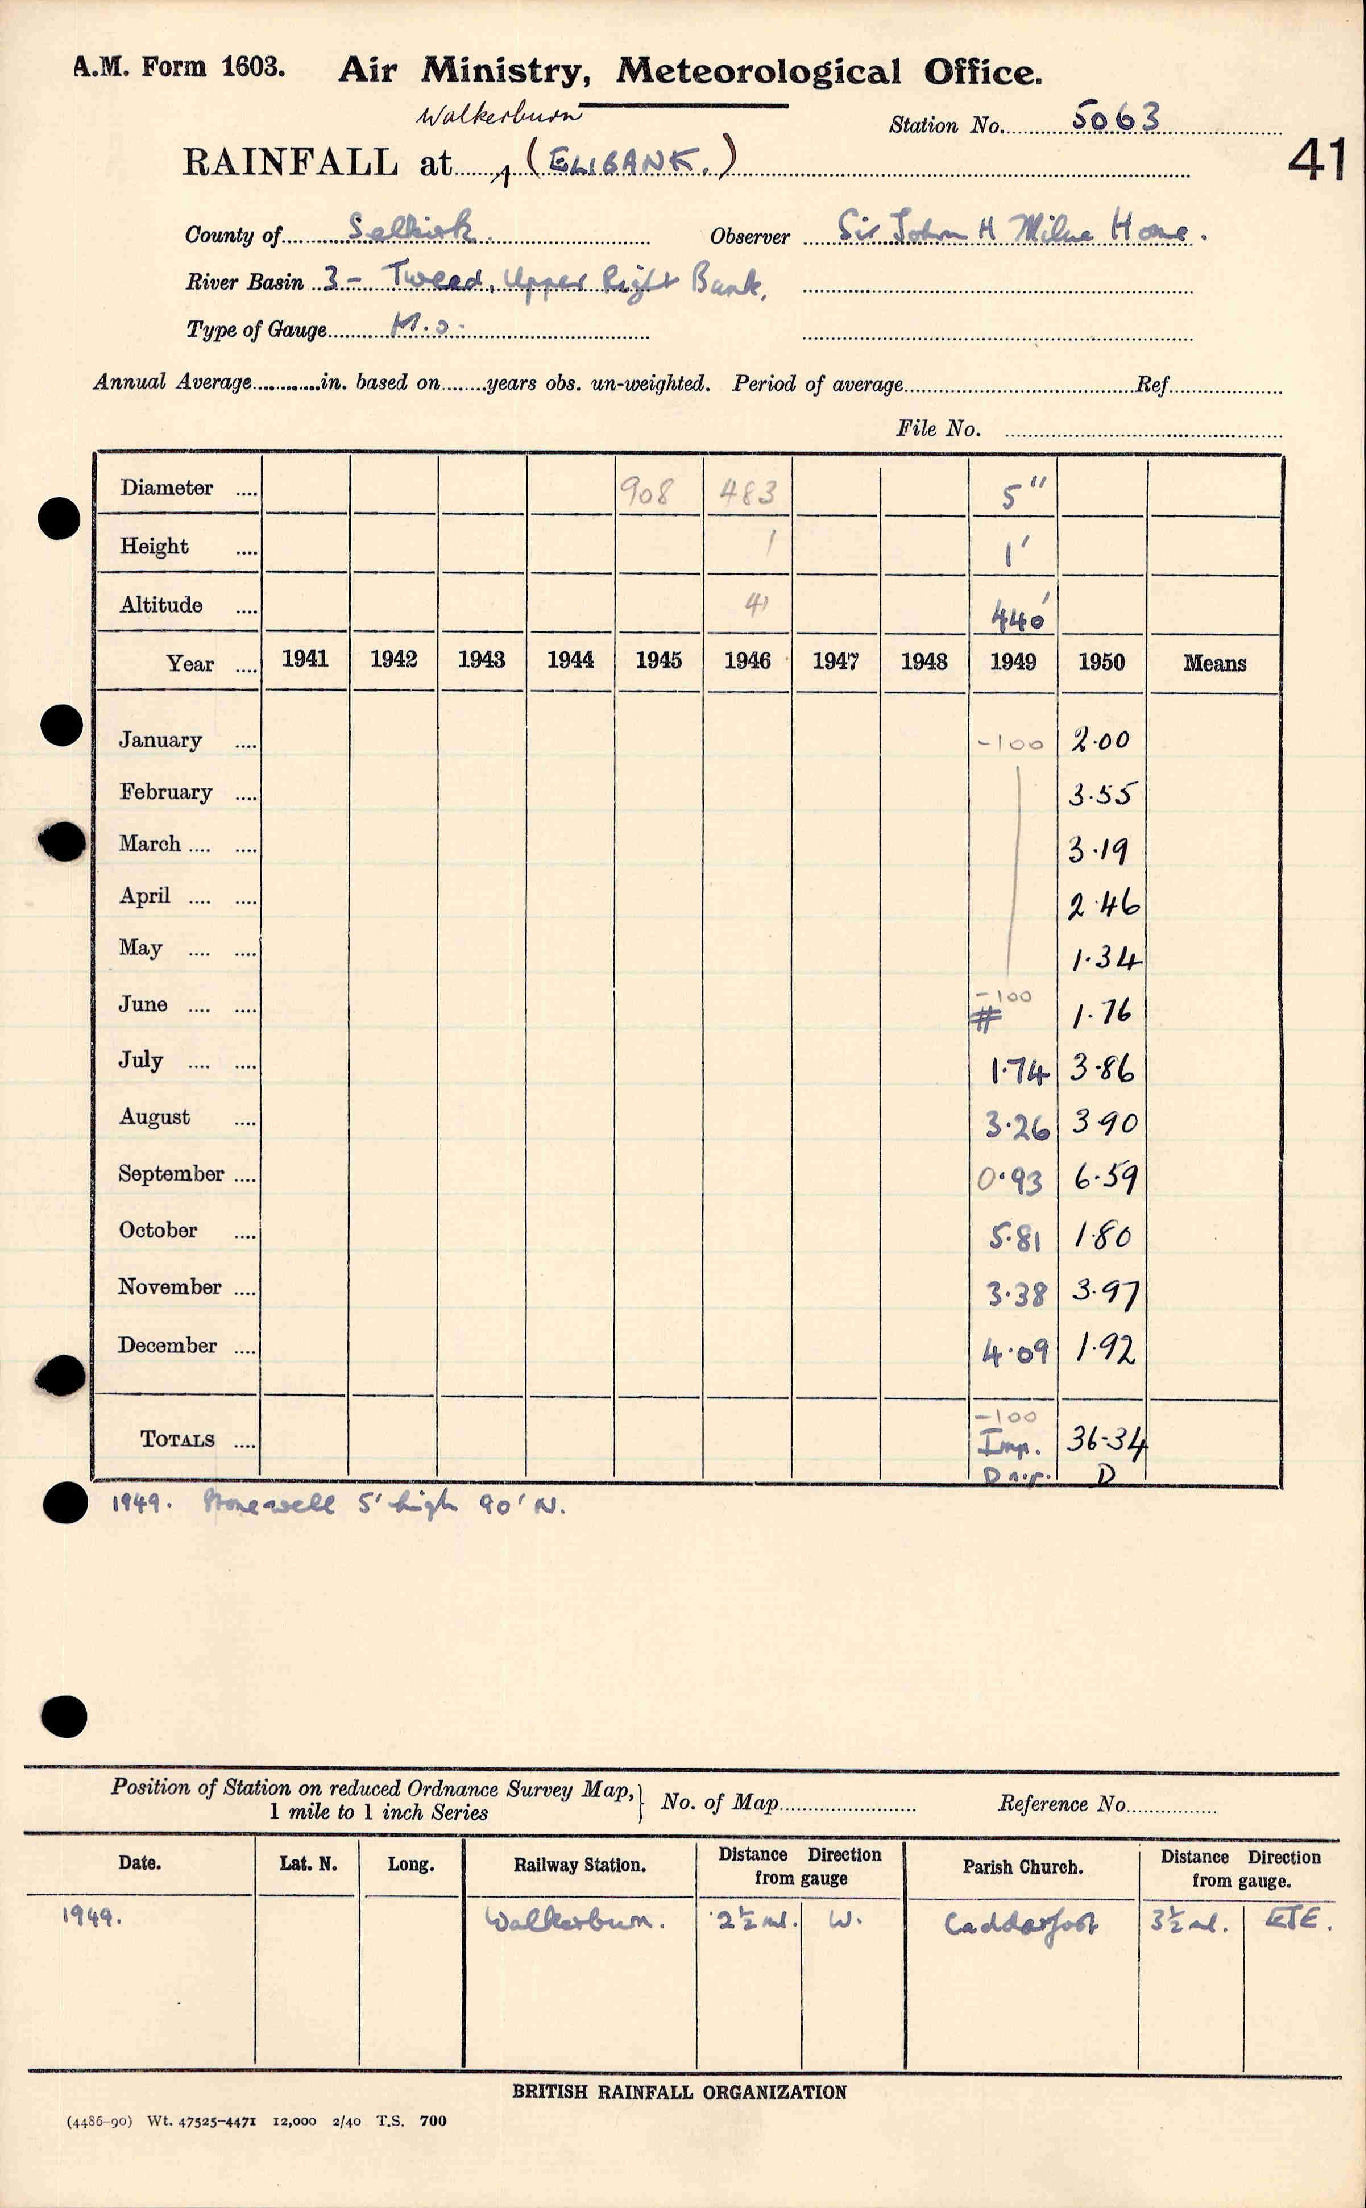 A.M. Form 1603. Air Ministry, Meteorological Office.
Walkerburn
Station No. 5063
41
RAINFALL at (ELIBANK.)
County of Selkirk. Observer Sir John H Milne Home.
River Basin 3 - Tweed, Upper Right Bank.
Type of Gauge M.O.
Annual Average............in. based on........years obs. un-weighted. Period of average........Ref........
File No.
Diameter .... 908 483 5"
Height .... 1 1'
Altitude .... 41 440'
Year .... 1941 1942 1943 1944 1945 1946 1947 1948 1949 1950 Means
January .... -100 2.00
February .... 3.55
March .... .... 3.19
April .... .... 2.46
May .... .... 1.34
June .... .... -100 # 1.76
July .... .... 1.74 3.86
August .... 3.26 3.90
September .... 0.93 6.59
October .... 5.81 1.80
November .... 3.38 3.97
December .... 4.09 1.92
-100
TOTALS .... Imp. 36.34
D
1949. 5' high 90' N.
Position of Station on reduced Ordnance Survey Map,
1 mile to 1 inch Series } No. of Map........ Reference No........
Date. Lat. N. Long. Railway Station. Distance from gauge Direction Parish Church. Distance from gauge. Direction
1949. Walkerburn. 2½ ml. W. Caddonfoot 3½ ml. E.
BRITISH RAINFALL ORGANIZATION
(4486-90) Wt. 47525-4471 12,000 2/40 T.S. 700